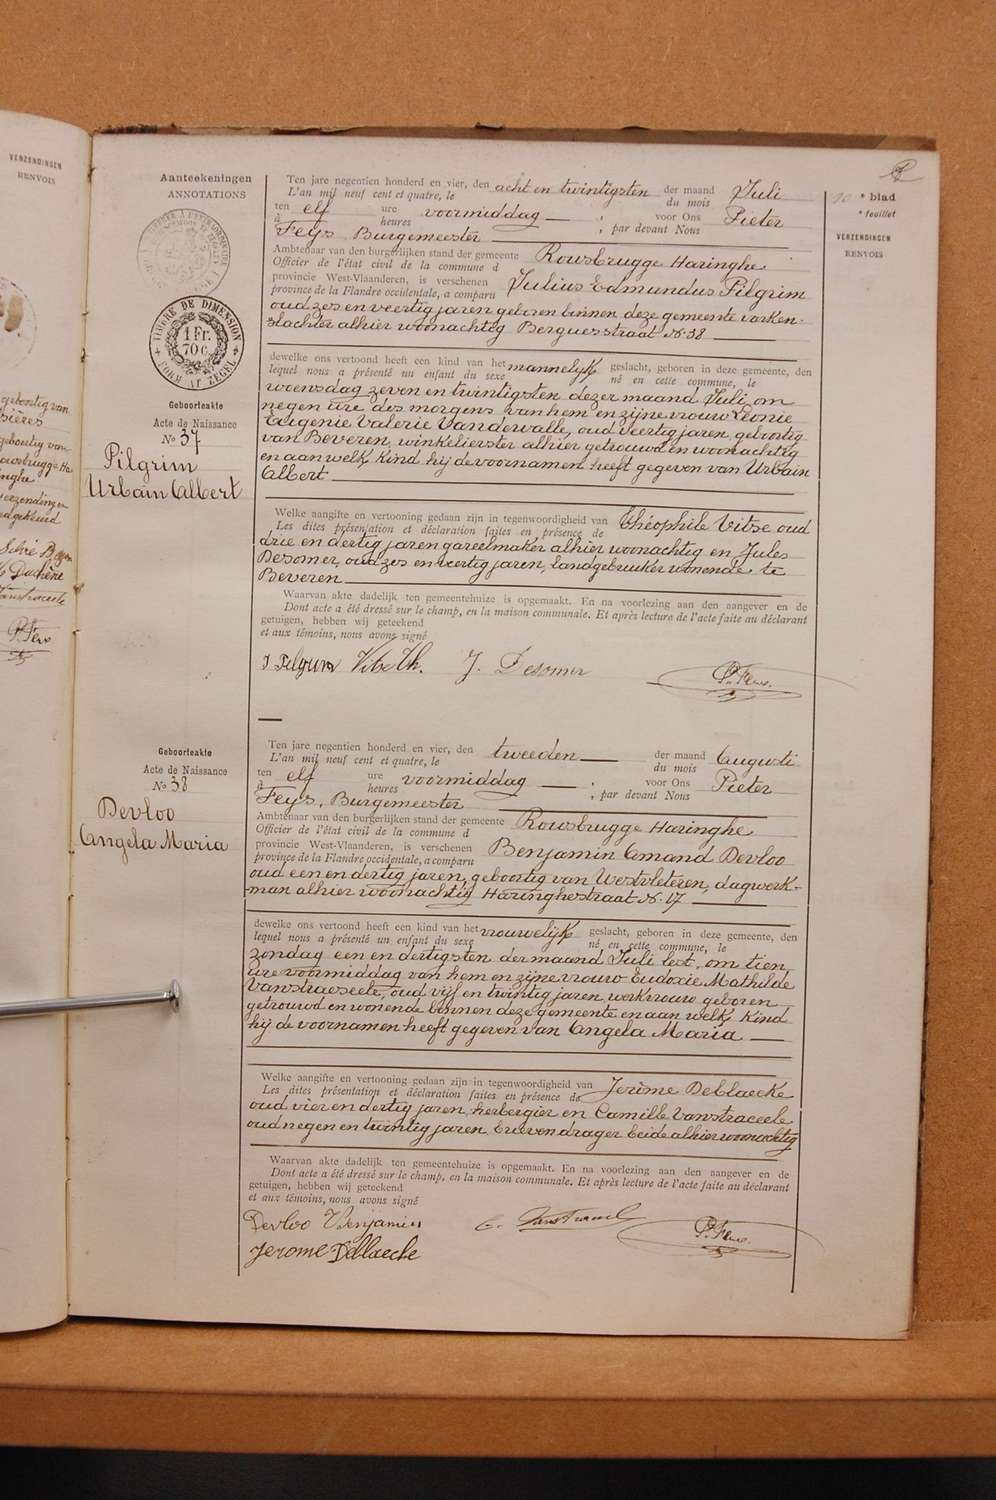 VERZENDINGEN
RENVOIS
geboortig van
geboortig van
verzendingen
goedgekeurd
Duchêne
Vanstraceele
P. Feys
Aanteekeningen
ANNOTATIONS
TIMBRE DE DIMENSION
1 Fr.
70 c.
FORMAAT ZEGEL
Geboorteakte
Acte de Naissance
No 37
Pilgrim
Urbain Albert
Ten jare negentien honderd en vier, den acht en twintigsten der maand Juli
L'an mil neuf cent et quatre, le du mois
ten elf ure voormiddag — , voor Ons Pieter
à heures ; par devant Nous
Feys, Burgemeester
Ambtenaar van den burgerlijken stand der gemeente Rousbrugge Haringhe
Officier de l'état civil de la commune d
provincie West-Vlaanderen, is verschenen Julius Edmundus Pilgrim
province de la Flandre occidentale, a comparu
oud zes en veertig jaren geboren binnen deze gemeente varken-
slachter alhier woonachtig Berguesstraat No 38
dewelke ons vertoond heeft een kind van het mannelijk geslacht, geboren in deze gemeente, den
lequel nous a présenté un enfant du sexe né en cette commune, le
woensdag zeven en twintigsten dezer maand Juli, om
negen ure des morgens van hem en zijne vrouw Leonie
Eugenie Valerie Vandewalle, oud veertig jaren, geboortig
van Beveren, winkelierster alhier getrouwd en woonachtig
en aan welk kind hij de voornamen heeft gegeven van Urbain
Albert
Welke aangifte en vertooning gedaan zijn in tegenwoordigheid van Théophile Vitse oud
Les dites présentation et déclaration faites en présence de
drie en dertig jaren gareelmaker alhier woonachtig en Jules
Desomer, oud zes en veertig jaren, landgebruiker wonende te
Beveren
Waarvan akte dadelijk ten gemeentehuize is opgemaakt. En na voorlezing aan den aangever en de
Dont acte a été dressé sur le champ, en la maison communale. Et après lecture de l'acte faite au déclarant
getuigen, hebben wij geteekend
et aux témoins, nous avons signé
J Pilgrim Vitse Th. J. Desomer P. Feys.
Geboorteakte
Acte de Naissance
No 38
Devloo
Angela Maria
Ten jare negentien honderd en vier, den tweeden der maand Augusti
L'an mil neuf cent et quatre, le du mois
ten elf ure voormiddag — ; voor Ons Pieter
à heures ; par devant Nous
Feys, Burgemeester
Ambtenaar van den burgerlijken stand der gemeente Rousbrugge Haringhe
Officier de l'état civil de la commune d
provincie West-Vlaanderen, is verschenen Benjamin Amand Devloo
province de la Flandre occidentale, a comparu
oud een en dertig jaren, geboortig van Westvleteren, dagwerk-
man alhier woonachtig Haringhestraat No 17
dewelke ons vertoond heeft een kind van het vrouwelijk geslacht, geboren in deze gemeente, den
lequel nous a présenté un enfant du sexe né en cette commune, le
zondag een en dertigsten der maand Juli lest, om tien
ure voormiddag van hem en zijne vrouw Eudoxie Mathilde
Vanstraeseele, oud vijf en twintig jaren, werkvrouw geboren
getrouwd en wonende binnen deze gemeente en aan welk kind
hij de voornamen heeft gegeven van Angela Maria
Welke aangifte en vertooning gedaan zijn in tegenwoordigheid van Jerôme Deblaecke
Les dites présentation et déclaration faites en présence de
oud vier en dertig jaren, herbergier en Camille Vanstraceele
oud negen en twintig jaren brievendrager beide alhier woonachtig
Waarvan akte dadelijk ten gemeentehuize is opgemaakt. En na voorlezing aan den aangever en de
Dont acte a été dressé sur le champ, en la maison communale. Et après lecture de l'acte faite au déclarant
getuigen, hebben wij geteekend
et aux témoins, nous avons signé
Devloo Benjamin C. Vanstraceele P. Feys.
Jerome Deblaecke
10 e blad
e feuillet
VERZENDINGEN
RENVOIS